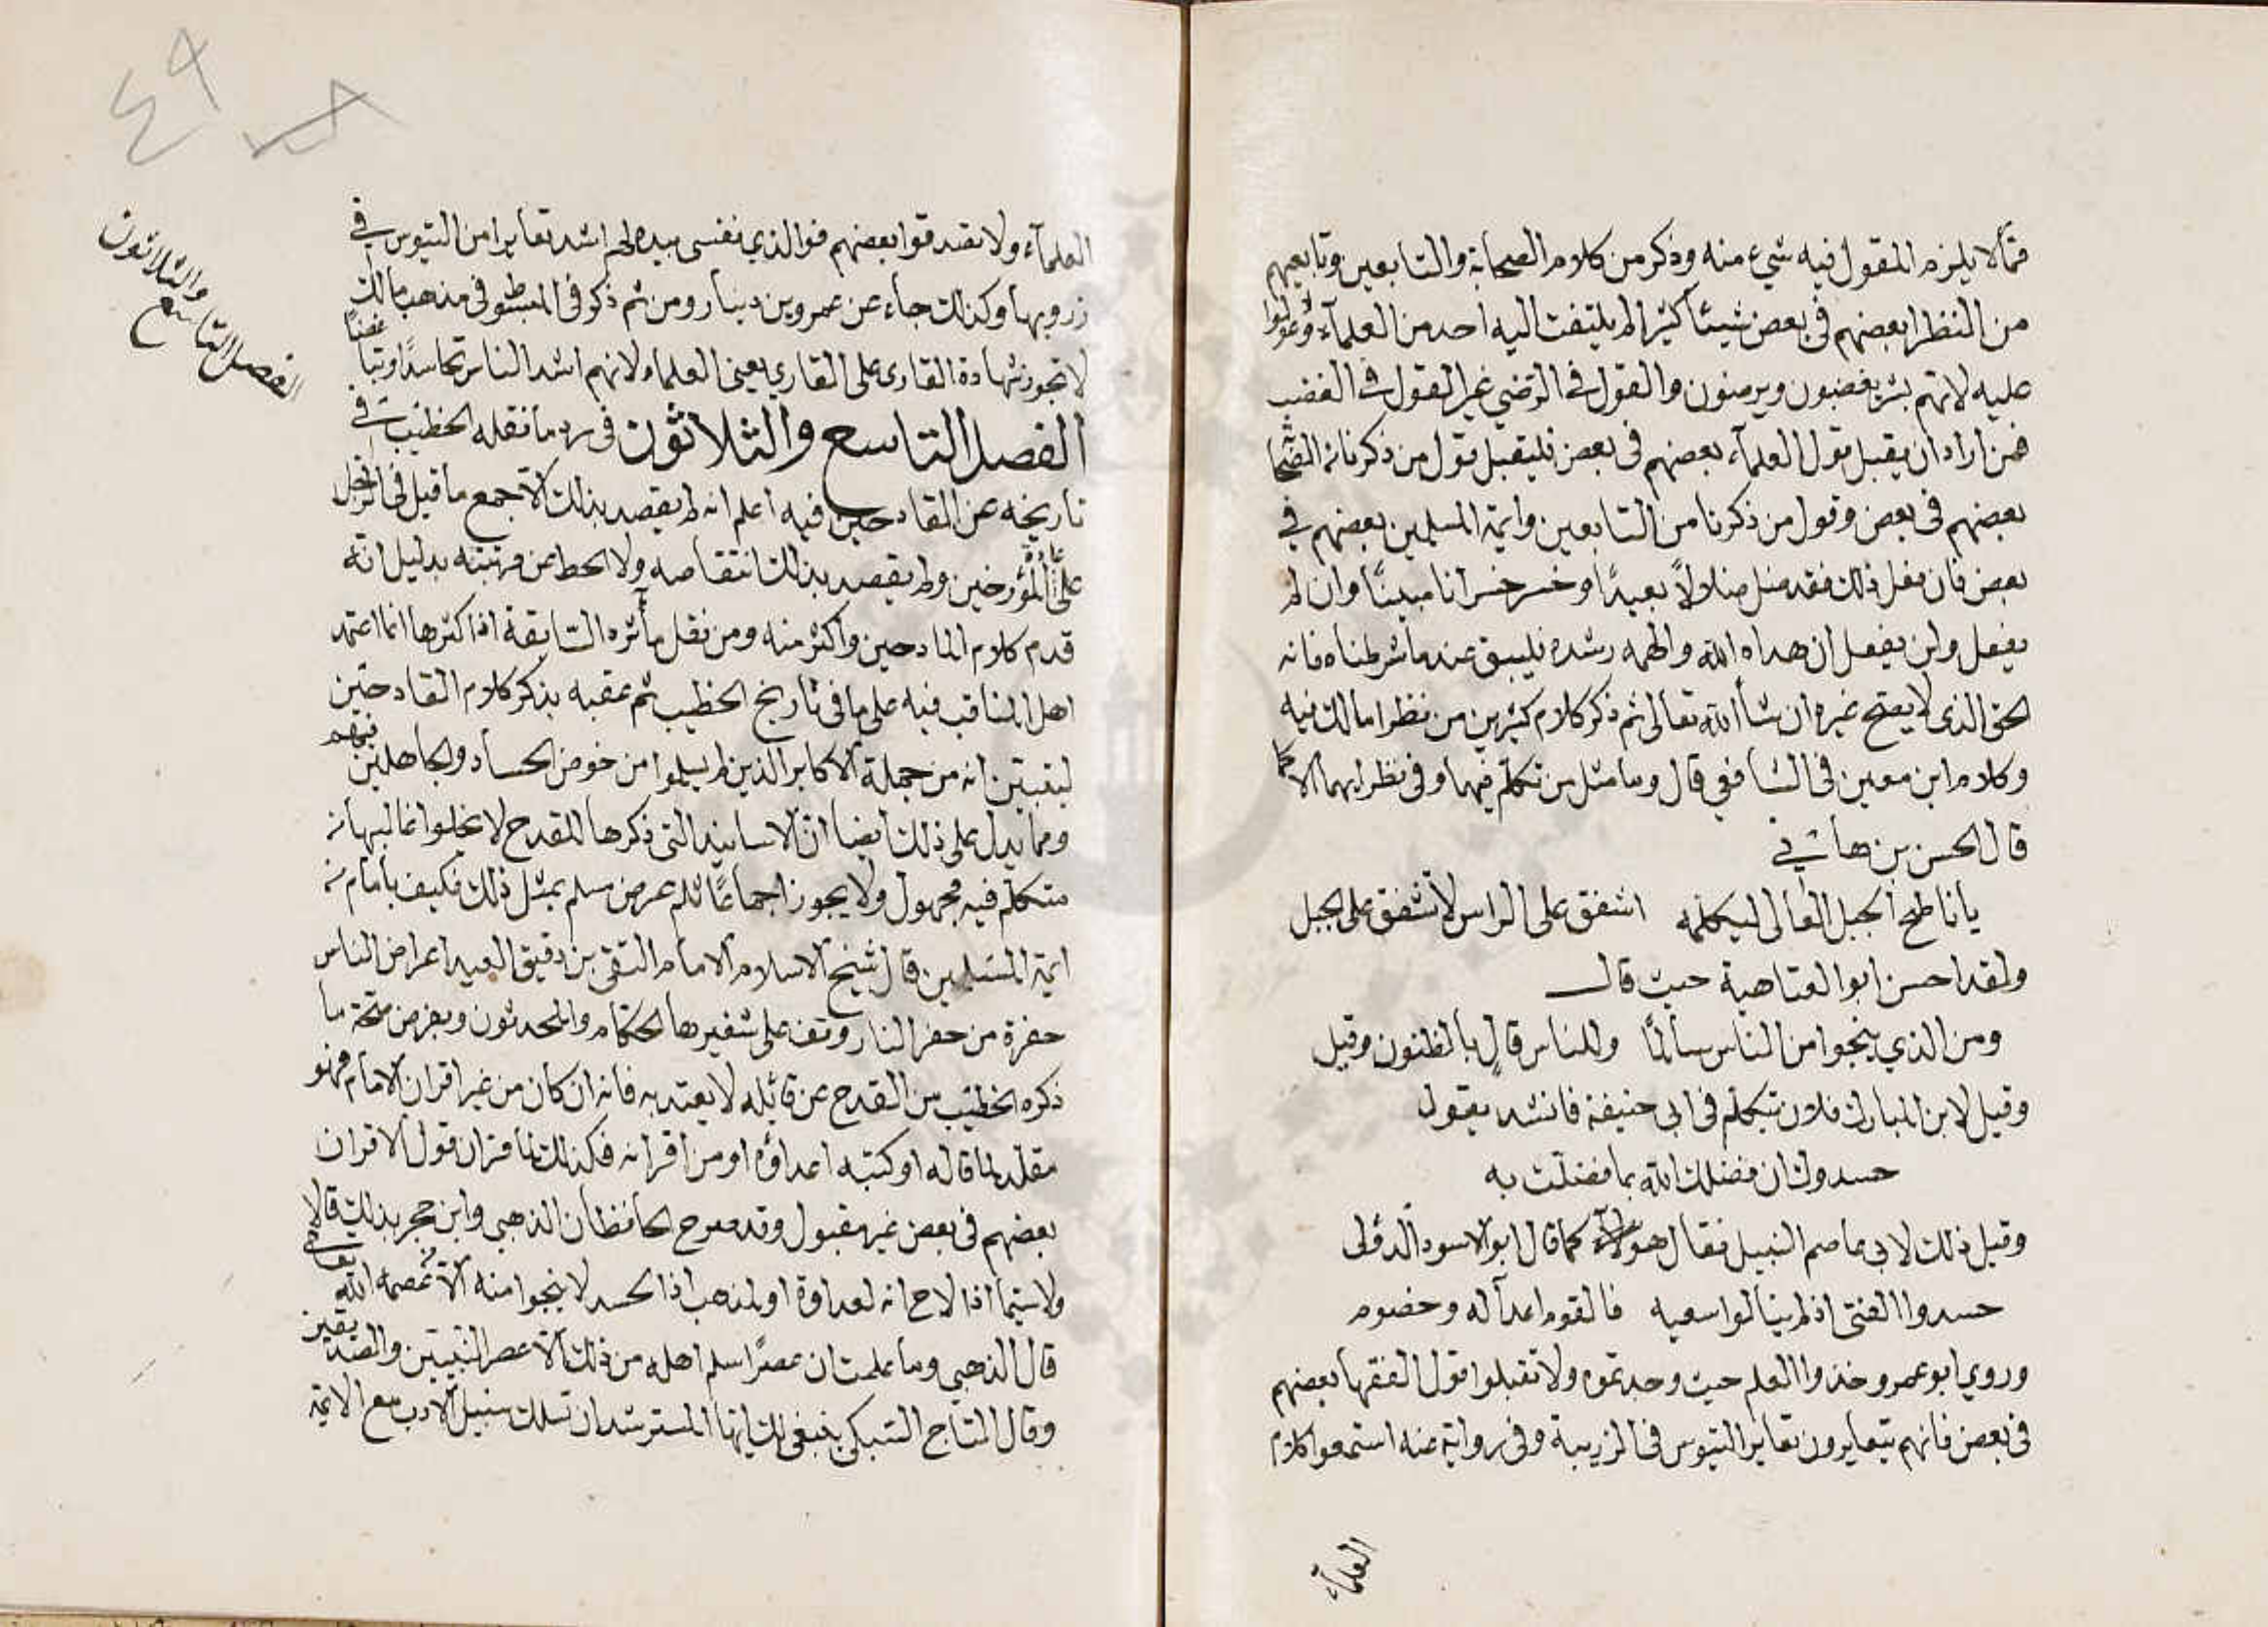 فمما لا يلزم المقول فيه شيء منه وذكر من كلام الصحابة والتابعين وتابعيهم
من النظرا بعضهم في بعض شيئا كثيرا لم يلتفت اليه احد من العلمآء وعولوا
عليه لانهم بشر يغضبون ويرضون والقول في الرضي غير القول في الغضب
فمن اراد ان يقبل قول العلمآء بعضهم في بعض فليقبل قول من ذكرنا من الصحا
بعضهم في بعض وقول من ذكرنا من التابعين وايمة المسلمين بعضهم في
بعض فان فعل ذلك فقد ضل ضلالاً بعيدًا وخسر خسرانا مبينًا وان لم
يفعل ولن يفعل ان هداه الله والهمه رشده فليبق عند ما شرطناه فانه
الحق الذي لا يصح غيره ان شا الله تعالى ثم ذكر كلام كثيرين من نظرا مالك فيه
وكلام ابن معين في الشافعي قال وما مثل من تكلم فيهما وفي نظرايهما الا كما
قال الحسن بن هاني
يا ناطح الجبل العالى ليكلمه اشفق على الراس لا تشفق على الجبل
ولقد احسن ابو العتاهية حيث قال
ومن الذي ينجوا من الناس سالمًا وللناس قالٍ بالظنون وقيل
وقيل لابن المبارك فلان يتكلم في ابي حنيفة فانشد يقول
حسدوك ان فضلك الله بما فضلت به
وقيل ذلك لابي عاصم النبيل فقال هو كما قال ابو الاسود الدؤلى
حسدوا الفتى اذ لم ينالوا سعيه فالقوم اعدآ له وخصوم
وروي ابو عمرو خذوا العلم حيث وجدتموه ولا تقبلوا قول الفقها بعضهم
في بعض فانهم يتغايرون تغاير التيوس في الزريبة وفي رواية عنه استمعوا كلام
العلمآء
العلمآء ولا تصدقوا بعضهم فوالذي نفسى بيده لهم اشد تغايرا من التيوس في
زروبها وكذلك جاء عن عمرو بن دينار ومن ثم ذكر في المبسوط في مذهب مالك
لا تجوز شهادة القارى على القاري يعنى العلماء لانهم اشد الناس تحاسدًا وتبا
غضًا
الفصل التاسع والثلاثون في رد ما نقله الخطيب في
الفصل التاسع والثلاثون
تاريخه عن القادحين فيه اعلم انه لم يقصد بذلك الا جمع ما قيل في الرجل
على عادة المؤرخين ولم يقصد بذلك انتقاصه ولا الحط عن مرتبته بدليل انه
قدم كلام المادحين واكثر منه ومن نقل مآثره السابقة اذ اكثرها انما اعتمد
اهل المناقب فيه على ما في تاريخ الخطيب ثم عقبه بذكر كلام القادحين
ليتبين انه من جملة الاكابر الذين لم يسلموا من خوض الحساد والجاهلين
فيهم
ومما يدل على ذلك ايضا ان الاسانيد التي ذكرها للقدح لا يخلوا غالبها من
متكلم فيه او مجهول ولا يجوز اجماعًا ثلم عرض مسلم بمثل ذلك فكيف بامام من
ايمة المسلمين قال شيخ الاسلام الامام التقي بن دقيق العيد اعراض الناس
حفرة من حفر النار وقف على شفيرها الحكام والمحدثون وبفرض صحة ما
ذكره الخطيب من القدح عن قائله لا يعتد به فانه ان كان من غير اقران الامام فهو
مقلد لما قاله او كتبه اعداؤه او من اقرانه فكذلك قول الاقران
بعضهم في بعض غير مقبول وقد صرح الحافظان الذهبي وابن حجر بذلك قالا
ولا سيما اذا لاح انه لعداوة او لمذهب اذ الحسد لا ينجوا منه الا من عصمه الله
تعالى
قال الذهبي وما علمت ان عصرًا سلم اهله من ذلك الا عصر النبيين والصديقين
وقال التاج السبكي ينبغي لك ايها المسترشد ان تسلك سبيل الادب مع الائمة
٤٩